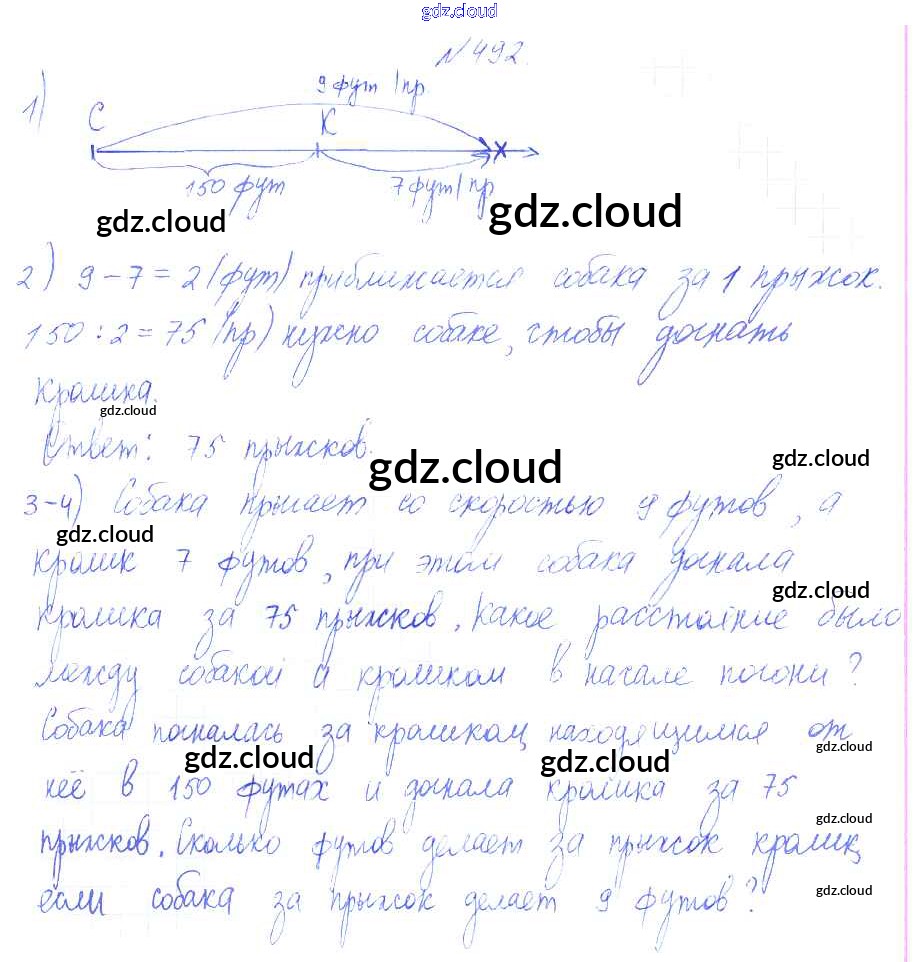 gdz.cloud
№492.
9 фут/пр
1)
С К
150 фут 7 фут/пр
gdz.cloud gdz.cloud
2) 9-7=2(фут) приближается собака за 1 прыжок.
150:2=75(пр) нужно собаке, чтобы догнать
кролика.
gdz.cloud
Ответ: 75 прыжков.
gdz.cloud gdz.cloud
3-4) Собака прыгает со скоростью 9 футов, а
gdz.cloud
кролик 7 футов, при этом собака догнала
gdz.cloud
кролика за 75 прыжков. Какое расстояние было
между собакой и кроликом в начале погони?
Собака погналась за кроликом, находящимся от
gdz.cloud gdz.cloud gdz.cloud
неё в 150 футах и догнала кролика за 75
gdz.cloud
прыжков. Сколько футов делает за прыжок кролик,
gdz.cloud
если собака за прыжок делает 9 футов?